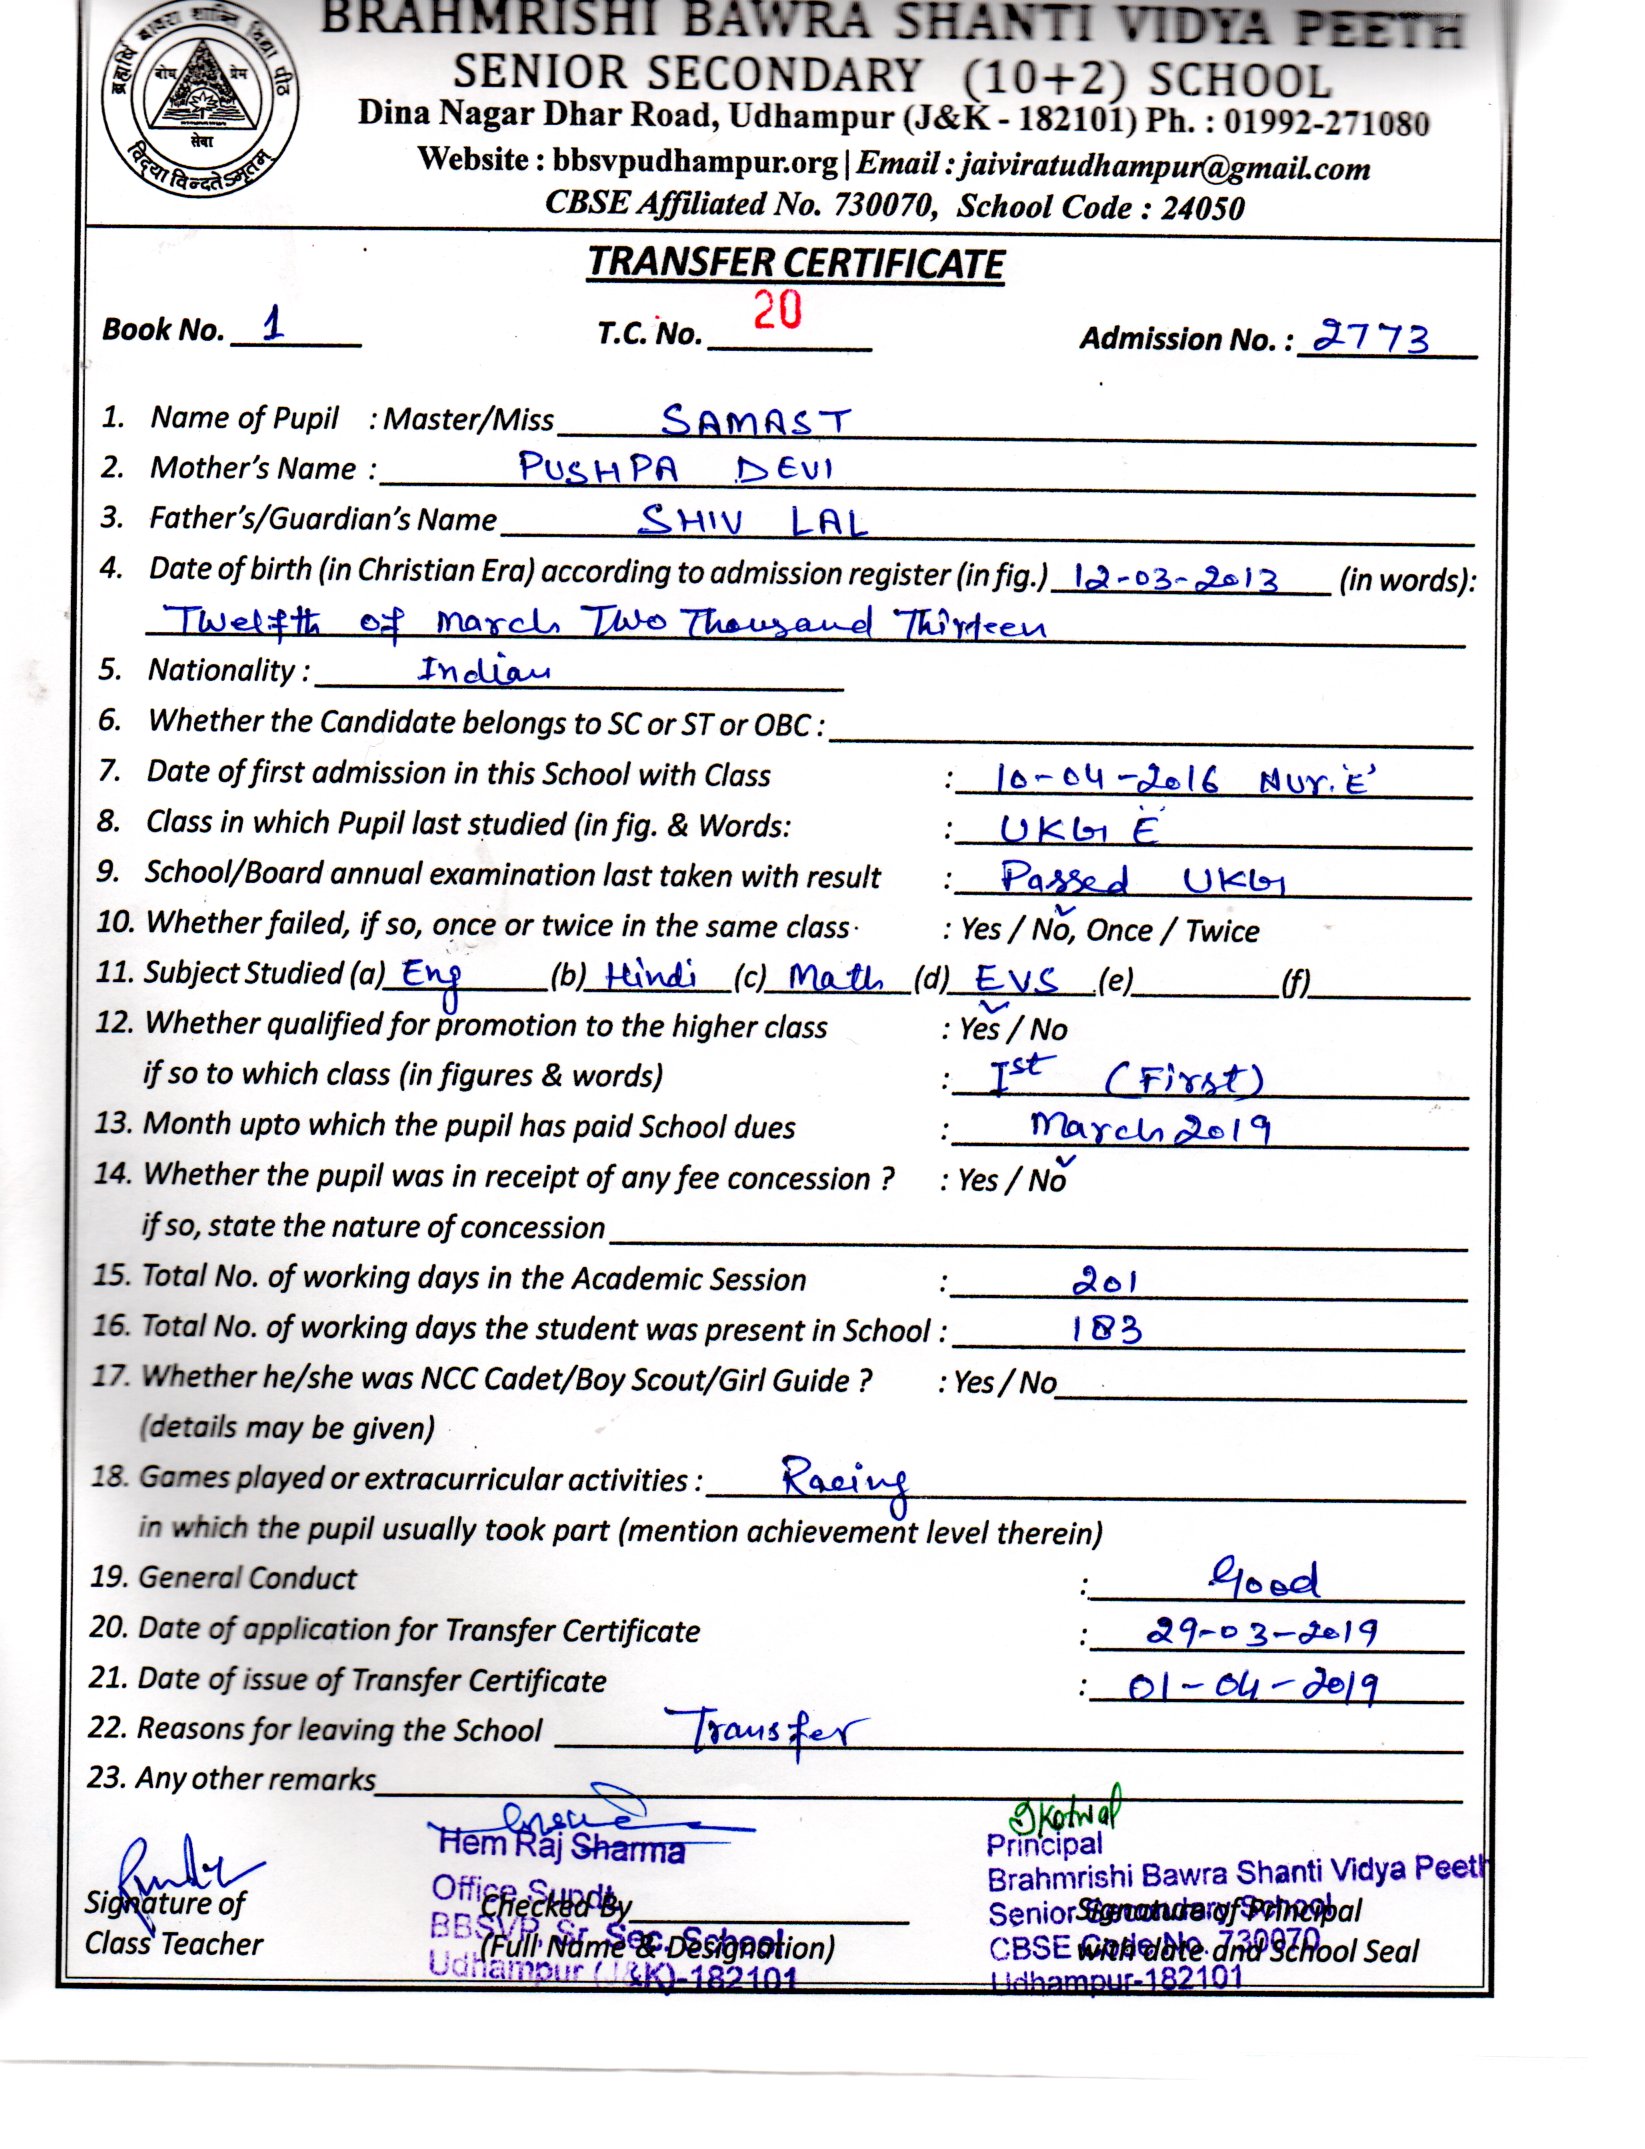 ब्रह्मर्षि बावरा शान्ति विद्या पीठ
बोध प्रेम
सेवा
विद्यया विन्दतेऽमृतम्
BRAHMRISHI BAWRA SHANTI VIDYA PEETH
SENIOR SECONDARY (10+2) SCHOOL
Dina Nagar Dhar Road, Udhampur (J&K - 182101) Ph. : 01992-271080
Website : bbsvpudhampur.org | Email : jaiviratudhampur@gmail.com
CBSE Affiliated No. 730070, School Code : 24050
TRANSFER CERTIFICATE
Book No. 1 T.C. No. 20 Admission No. : 2773
1. Name of Pupil : Master/Miss SAMAST
2. Mother's Name : PUSHPA DEVI
3. Father's/Guardian's Name SHIV LAL
4. Date of birth (in Christian Era) according to admission register (in fig.) 12-03-2013 (in words):
Twelfth of March Two Thousand Thirteen
5. Nationality : Indian
6. Whether the Candidate belongs to SC or ST or OBC :
7. Date of first admission in this School with Class : 10-04-2016 Nur. 'E'
8. Class in which Pupil last studied (in fig. & Words: : UKG 'E'
9. School/Board annual examination last taken with result : Passed UKG
10. Whether failed, if so, once or twice in the same class : Yes / No, Once / Twice
11. Subject Studied (a) Eng (b) Hindi (c) Math (d) EVS (e) (f)
12. Whether qualified for promotion to the higher class : Yes / No
if so to which class (in figures & words) : Ist (First)
13. Month upto which the pupil has paid School dues : March 2019
14. Whether the pupil was in receipt of any fee concession ? : Yes / No
if so, state the nature of concession
15. Total No. of working days in the Academic Session : 201
16. Total No. of working days the student was present in School : 183
17. Whether he/she was NCC Cadet/Boy Scout/Girl Guide ? : Yes / No
(details may be given)
18. Games played or extracurricular activities : Racing
in which the pupil usually took part (mention achievement level therein)
19. General Conduct : Good
20. Date of application for Transfer Certificate : 29-03-2019
21. Date of issue of Transfer Certificate : 01-04-2019
22. Reasons for leaving the School Transfer
23. Any other remarks
Signature of
Class Teacher
Hem Raj Sharma
Office Supdt.
BBSVP. Sr. Sec. School
Udhampur (J&K)-182101
Checked By
(Full Name & Designation)
Kotwal
Principal
Brahmrishi Bawra Shanti Vidya Peeth
Senior Secondary School
CBSE Code No. 730070
Udhampur-182101
Signature of Principal
with date and School Seal